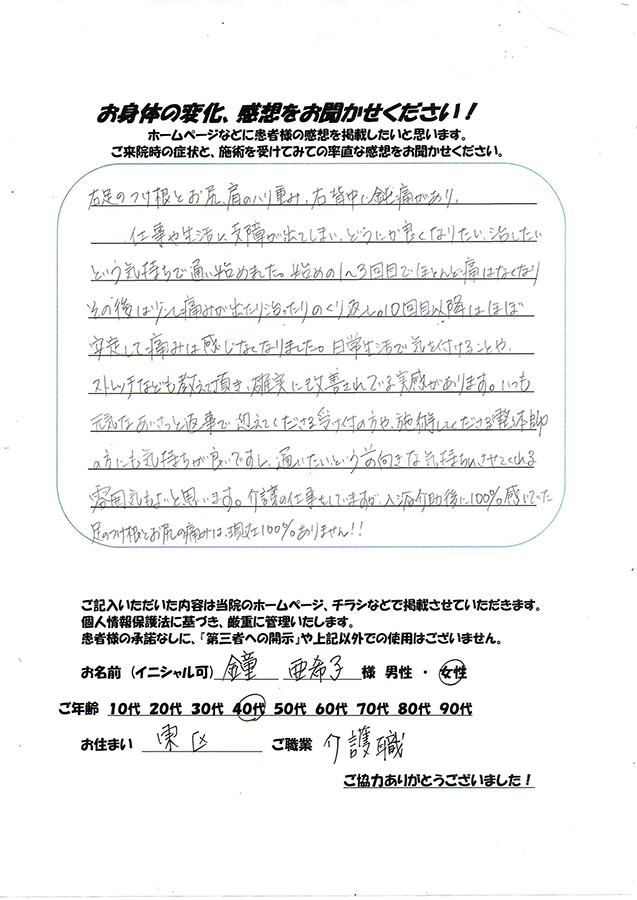 お身体の変化、感想をお聞かせください！
ホームページなどに患者様の感想を掲載したいと思います。
ご来院時の症状と、施術を受けてみての率直な感想をお聞かせください。
右足のつけ根とお尻、肩のハリ重み、右背中に鈍痛があり、
仕事や生活に支障が出てしまい、どうにか良くなりたい、治したい
という気持ちで通い始めました。始めの1〜3回目でほとんど痛はなくなり
その後は少し痛みが出たり治ったりのくり返し。10回目以降はほぼ
安定して痛みは感じなくなりました。日常生活で気を付けることや、
ストレッチなども教えて頂き、確実に改善されている実感があります。いつも
元気なあいさつと返事で迎えてくださる受け付の方や、施術してくださる整体師
の方にも気持ちが良いですし、通いたいという前向きな気持ちにさせてくれる
雰囲気もよいと思います。介護の仕事をしていますが、入浴介助後に100%感じてた
足のつけ根とお尻の痛みは、現在100%ありません!!
ご記入いただいた内容は当院のホームページ、チラシなどで掲載させていただきます。
個人情報保護法に基づき、厳重に管理いたします。
患者様の承諾なしに、「第三者への開示」や上記以外での使用はございません。
お名前（イニシャル可） 鐘 亜希子 様 男性 ・ 女性
ご年齢 10代 20代 30代 40代 50代 60代 70代 80代 90代
お住まい 東区 ご職業 介護職
ご協力ありがとうございました！